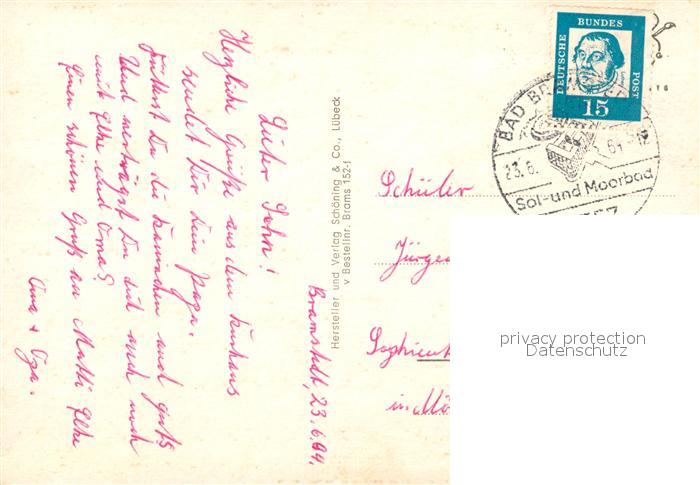 Bramstedt, 23.6.64.
Lieber Sohn!
Herzliche Grüße aus dem Kurhaus
sendet Dir Dein Papa.
Fütterst Du die Kaninchen auch gut?
Und verträgst Du dich auch noch
mit Elke und Oma?
Einen schönen Gruß an Mutti Elke
Oma + Opa.
Hersteller und Verlag Schöning & Co., Lübeck
v Bestellnr. Brams 152-f
DEUTSCHE BUNDES POST
15
BAD
23.6.
Sol-und Moorbad
Schüler
Jürgen
in
privacy protection
Datenschutz